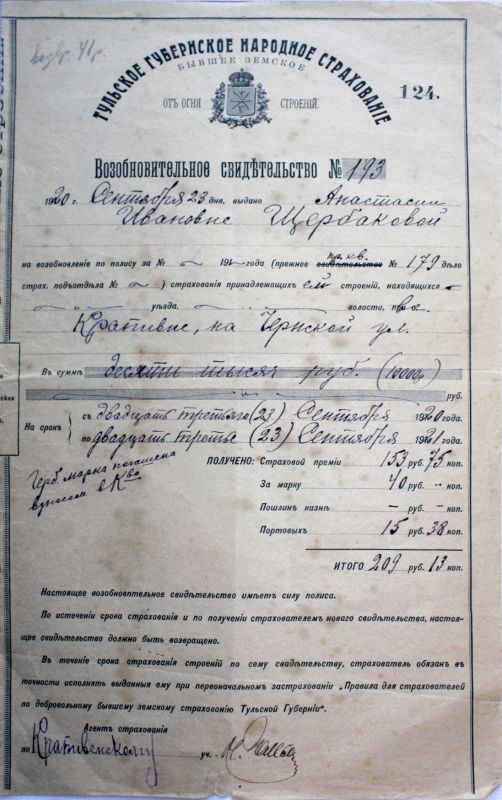 возвр. 41 р.
ТУЛЬСКОЕ ГУБЕРНСКОЕ НАРОДНОЕ СТРАХОВАНІЕ
БЫВШЕЕ ЗЕМСКОЕ
ОТЪ ОГНЯ СТРОЕНІЙ.
124.
Возобновительное свидѣтельство № 193
1920 г. Сентября 23 дня, выдано Анастасіи
Ивановне Щербаковой
на возобновленіе по полису за № 191 года (прежнее свидѣтельство пр. кв. № 179 дѣло
страх. подъотдѣла № ) страхованія принадлежащихъ ей строеній, находящихся
уѣзда, волости,
Крапивне, на Чернской ул.
Въ суммѣ десяти тысяч руб. (10000р)
руб.
На срокъ
съ двадцать третьяго (23) Сентября 1920 года.
по двадцать третье (23) Сентября 1921 года.
ПОЛУЧЕНО: Страховой преміи 153 руб. 75 коп.
Герб. марка погашена
взносом в Кво
За марку 40 руб. - коп.
Пошлинъ казнѣ - руб. - коп.
Портовыхъ 15 руб. 38 коп.
ИТОГО 209 руб. 13 коп.
Настоящее возобновительное свидѣтельство имѣетъ силу полиса.
По истеченіи срока страхованія и по полученіи страхователемъ новаго свидѣтельства, настоя-
щее свидѣтельство должно быть возвращено.
Въ теченіе срока страхованія строеній по сему свидѣтельству, страхователь обязанъ въ
точности исполнять выданныя ему при первоначальномъ застрахованіи „Правила для страхователей
по добровольному бывшему земскому страхованію Тульской Губерніи".
Агентъ страхованія
по Крапивенскому уч.